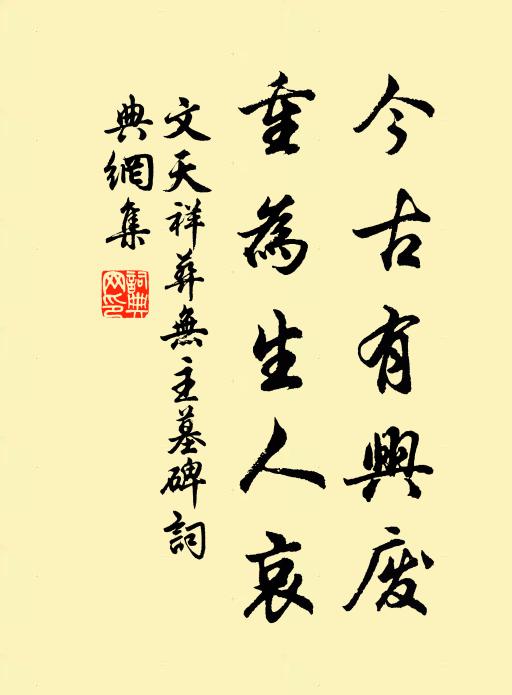 今古有興废
重為生人哀
文天祥葬無主墓碑詞
典網集
詞典网印